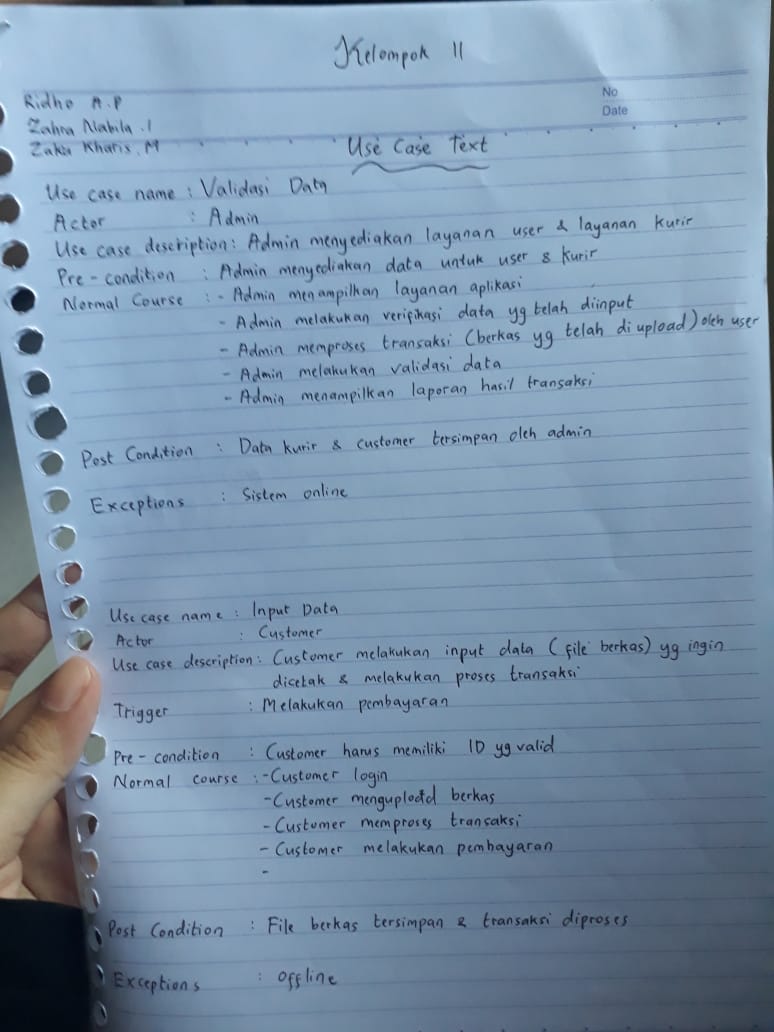 Kelompok 11
No
Ridho A.P
Date
Zahra Nabila .I
Zaka Kharis. M
Use Case Text
Use case name : Validasi Data
Actor : Admin
Use case description : Admin menyediakan layanan user & layanan kurir
Pre - condition : Admin menyediakan data untuk user & kurir
Normal Course : - Admin menampilkan layanan aplikasi
- Admin melakukan verifikasi data yg telah diinput
- Admin memproses transaksi (berkas yg telah di upload) oleh user
- Admin melakukan validasi data
- Admin menampilkan laporan hasil transaksi
Post Condition : Data kurir & customer tersimpan oleh admin
Exceptions : Sistem online
Use case name : Input Data
Actor : Customer
Use case description : Customer melakukan input data (file berkas) yg ingin
dicetak & melakukan proses transaksi
Trigger : Melakukan pembayaran
Pre - condition : Customer harus memiliki ID yg valid
Normal course : - Customer login
- Customer mengupload berkas
- Customer memproses transaksi
- Customer melakukan pembayaran
-
Post Condition : File berkas tersimpan & transaksi diproses
Exceptions : offline